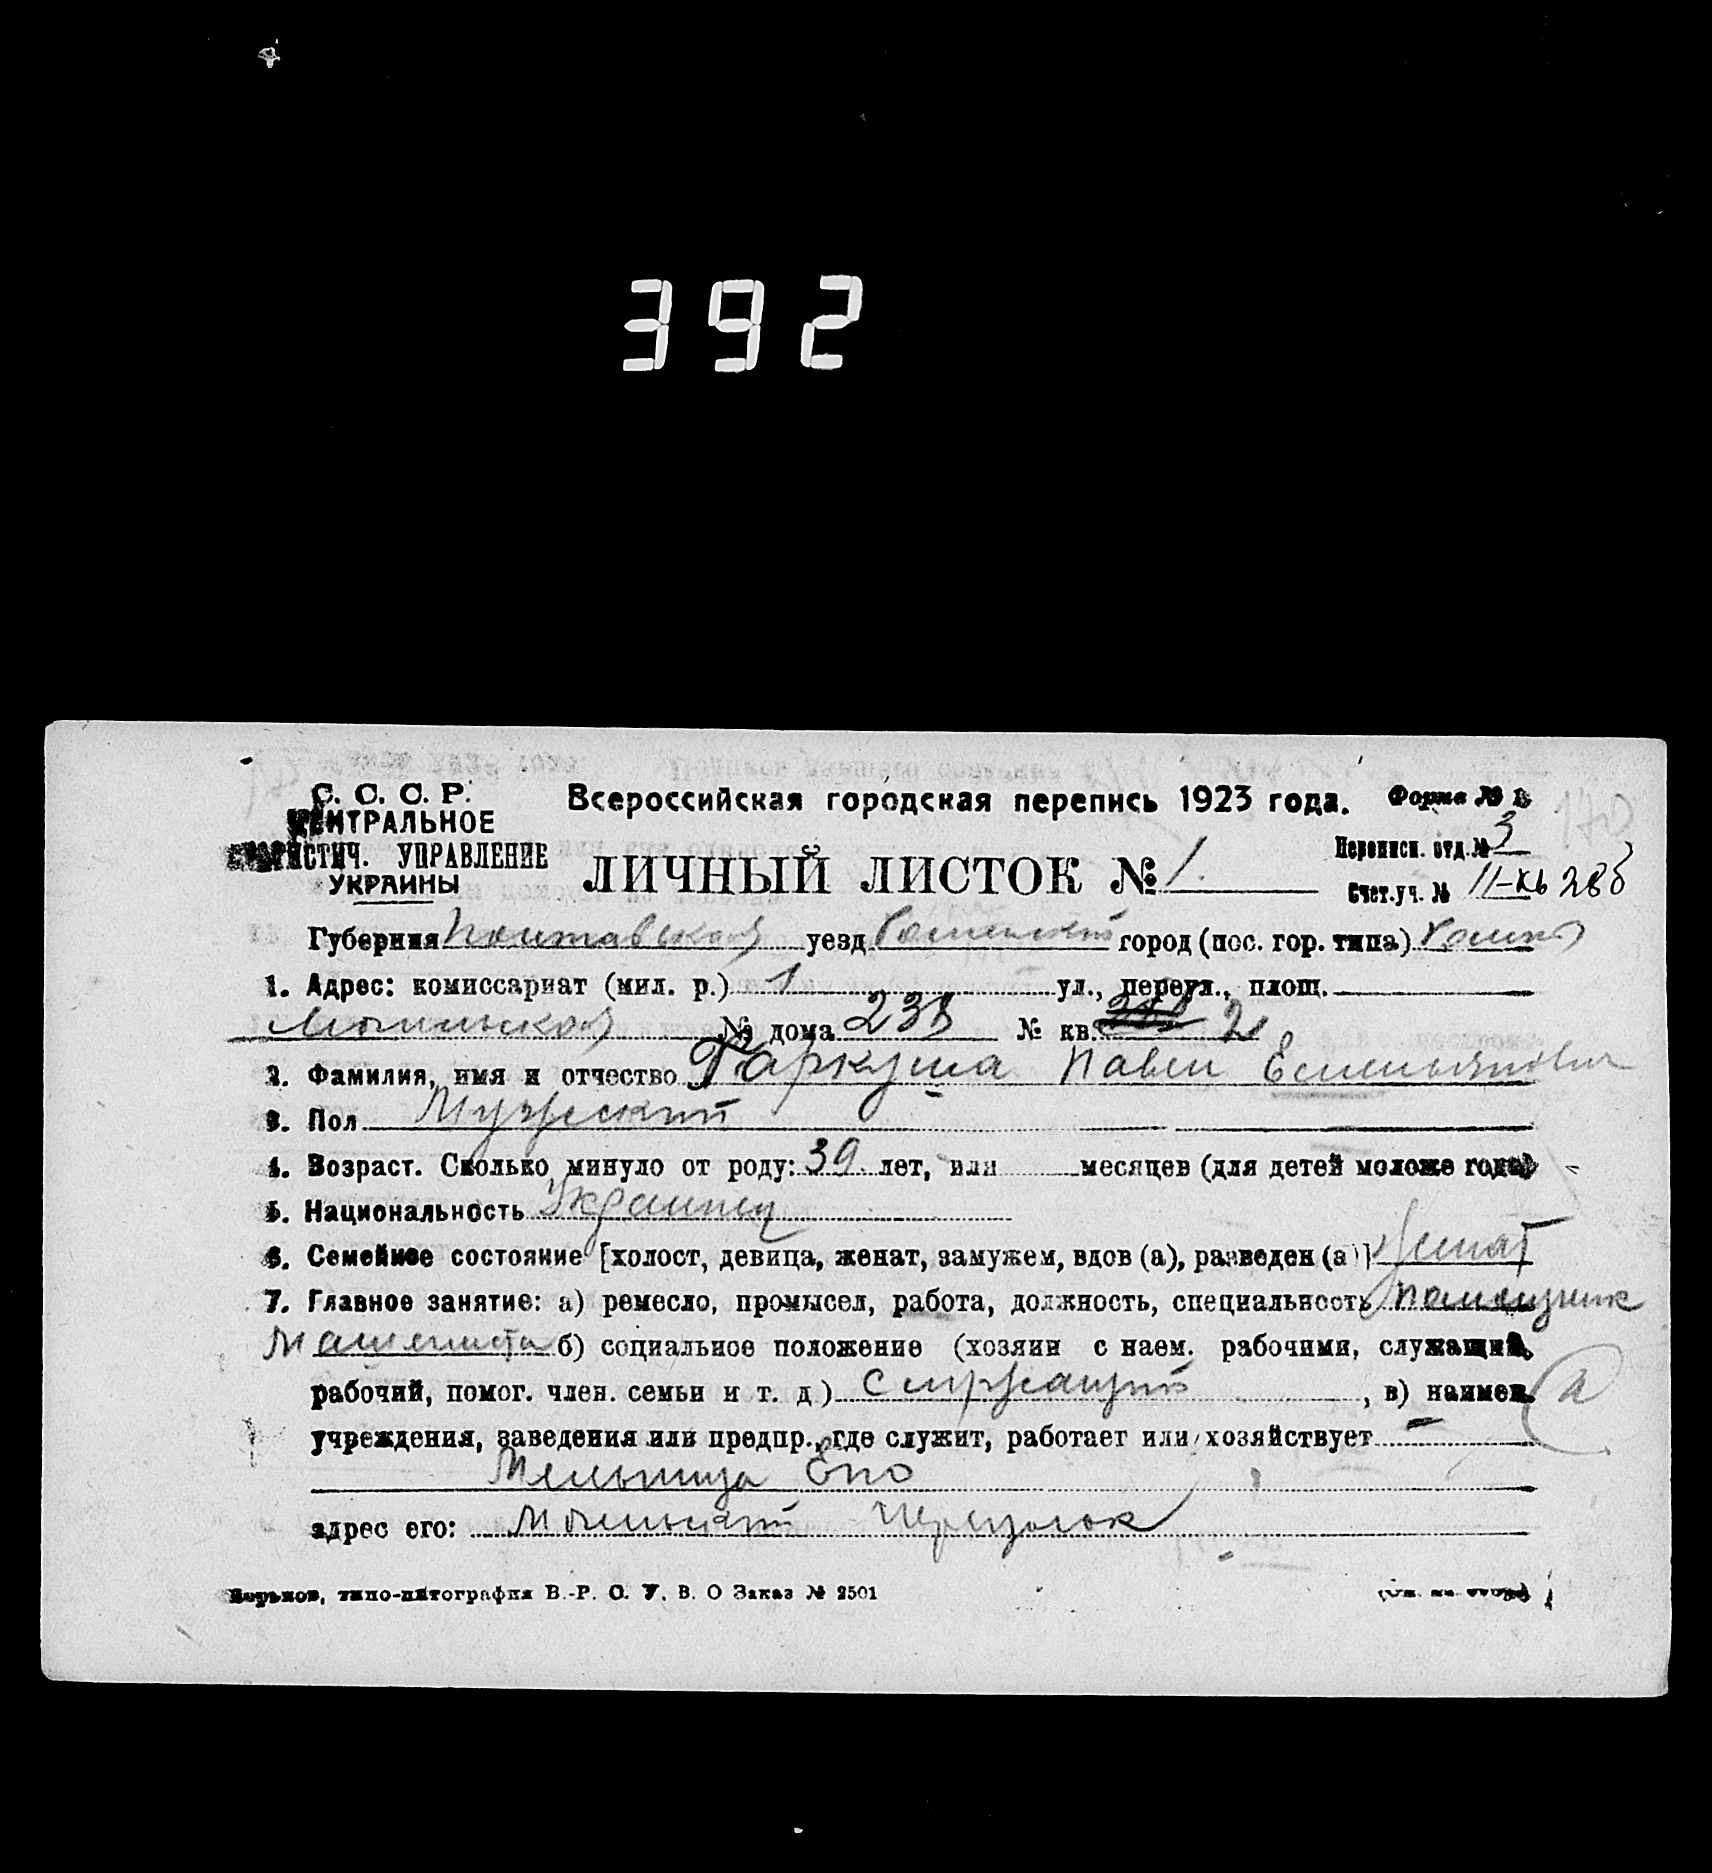 392
С. С. С. Р.
ЦЕНТРАЛЬНОЕ
СТАТИСТИЧ. УПРАВЛЕНИЕ
УКРАИНЫ
Всероссийская городская перепись 1923 года.
Форма № В
170
ЛИЧНЫЙ ЛИСТОК № 1.
Переписн. отд. № 3
Счет. уч. № 11-
Губерния Полтавская уезд Роменский город (пос. гор. типа) Ромны
1. Адрес: комиссариат (мил. р.) 1 ул., переул., площ.
№ дома № кв. 2
2. Фамилия, имя и отчество Гаркуша Павел Емельянович
3. Пол Мужеский
4. Возраст. Сколько минуло от роду: 39 лет, или месяцев (для детей моложе года)
5. Национальность Украинец
6. Семейное состояние [холост, девица, женат, замужем, вдов (а), разведен (а)] женат
7. Главное занятие: а) ремесло, промысел, работа, должность, специальность помощник
Машиниста б) социальное положение (хозяин с наем. рабочими, служащий,
рабочий, помог. член. семьи и т. д) служащий, в) наимен.
учреждения, заведения или предпр., где служит, работает или хозяйствует
Мельница Епо
адрес его: переулок
Харьков, типо-литография В.-Р. О. У. В. О Заказ № 2501
(См. на обор.)